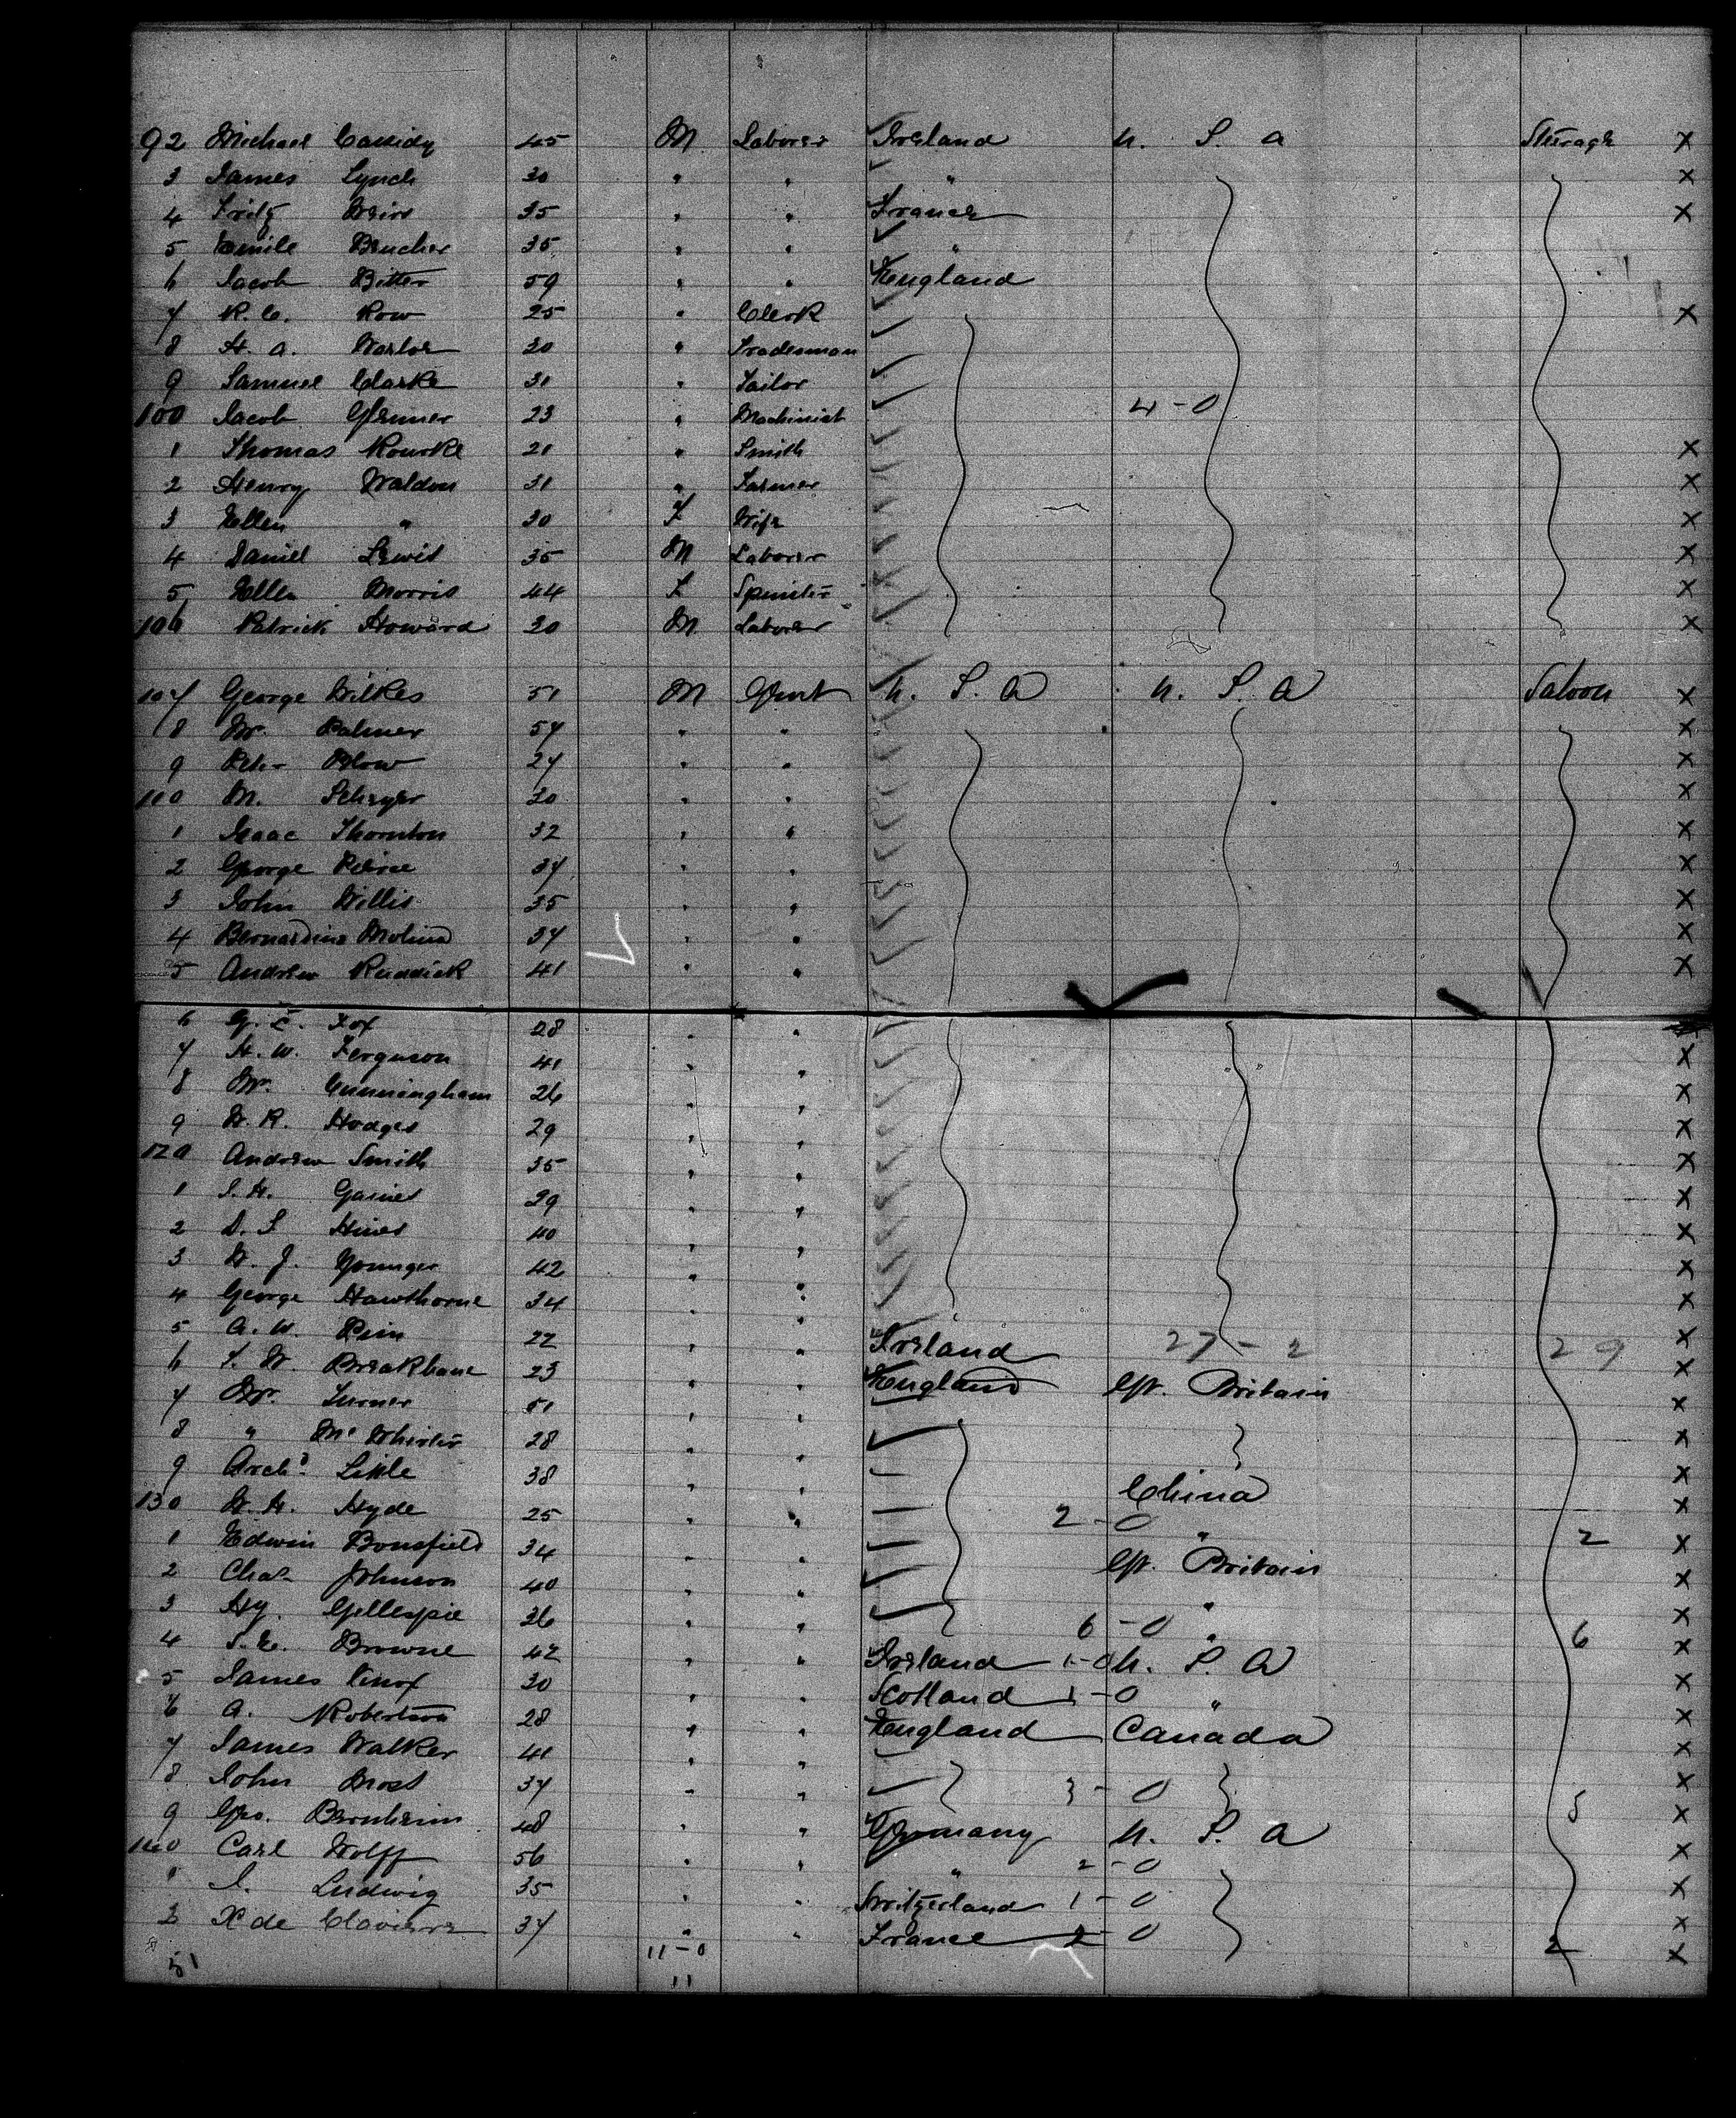 92 Michael Cassidy 45 M Laborer Ireland U. S. A Steerage X
3 James Lynch 30 " " " X
4 Fritz Weiss 35 " " France X
5 Emile Brucher 35 " " "
6 Jacob Bitter 59 " " England
7 R. C. Row 25 " Clerk X
8 H. A. 20 " Tradesman
9 Samuel Clarke 31 " Tailor
100 Jacob 23 " Machinist 4-0
1 Thomas Rourke 21 " Smith X
2 Henry Waldon 31 " Farmer X
3 Ellen " 30 F Wife X
4 Daniel Lewis 35 M Laborer X
5 Ellen Morris 44 F Spinster X
106 Patrick Howard 20 M Laborer X
107 George Wilkes 51 M Gent U. S. A U. S. A Saloon X
8 Mr. Palmer 57 " " X
9 Peter Blow 27 " " X
110 M. 30 " " X
1 Isaac Thornton 32 " " X
2 George Peirce 37 " " X
3 John Willis 35 " " X
4 Bernardino Molina 37 " " X
5 Andrew Ruddick 41 " " X
6 G. E. Fox 28 " "
7 H. W. Ferguson 41 " " X
8 Mr. Cunningham 26 " " X
9 W. R. Hodges 29 " " X
120 Andrew Smith 35 " " X
1 S. H. Gaines 29 " " X
2 D. S Hines 40 " " X
3 W. J. Younger 42 " " X
4 George Hawthorne 34 " " X
5 A. W. Pim 22 " " Ireland 27-2 29 X
6 S. W. Breakbane 23 " " England Gt. Britain X
7 Mr. Turner 51 " " X
8 " McWhirter 28 " " X
9 Archd. Little 38 " " China X
130 W. H. Hyde 25 " " 2-0 " 2 X
1 Edwin Bousfield 34 " " Gt. Britain X
2 Chas Johnson 40 " " " X
3 Hy. Gillespie 26 " " 6-0 " 6 X
4 S. E. Browne 42 " " Ireland 1-0 U. S. A X
5 James Knox 30 " " Scotland 1-0 "
6 A. Robertson 28 " " England Canada X
7 James Walker 41 " " X
8 John Most 37 " " 3-0 X
9 Geo. Bernheim 48 " " Germany U. S. A 5 X
140 Carl Wolff 56 " " " 2-0 X
1 Ludwig 35 " " Switzerland 1-0 X
2 X de 37 " " France 2-0 X
51 11-0 2 X
11